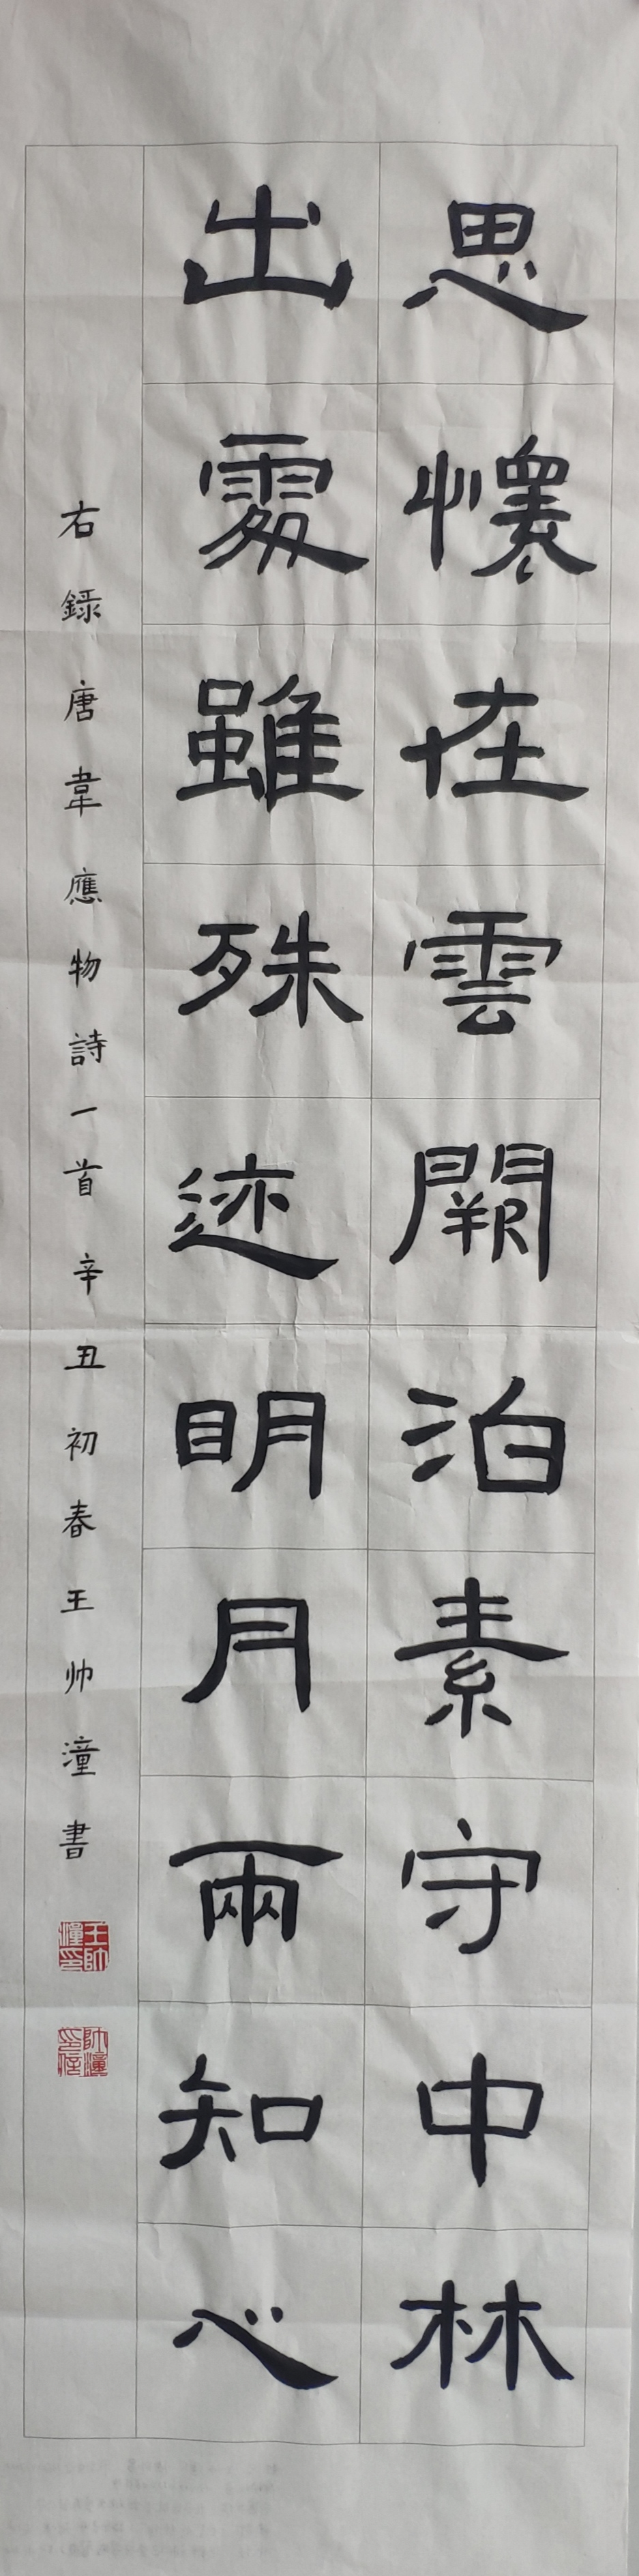 思懷在雲闕泊素守中林
出處雖殊迹明月兩知心
右錄唐韋應物詩一首辛丑初春王帅潼書
王帅潼印